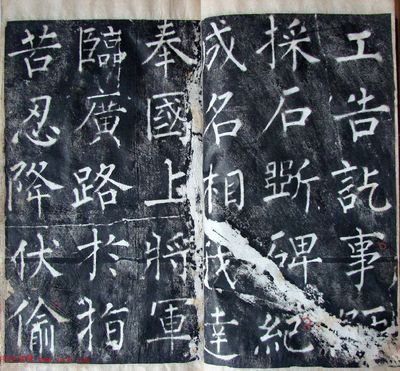 工告訖事
採石斲碑紀
成名相我達
奉國上將軍
臨廣路於
苦忍降伏偷